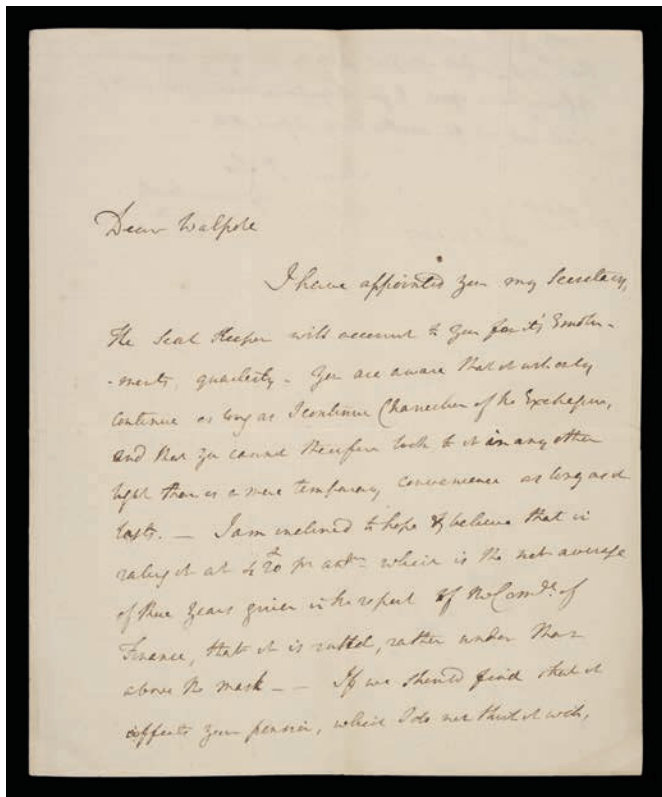 Dear Walpole
I have appointed you my Secretary,
the Seal Keeper will account to you for it's Emolu-
-ments, quarterly - You are aware that it will only
continue as long as I continue Chancellor of the Exchequer,
and that you cannot therefore look to it in any other
light than as a mere temporary convenience as long as it
lasts. — I am inclined to hope & believe that in
rating it at per ann which is the net average
of three years given in the report of the Comrs. of
Finance, that it is rated, rather under than
above the mark — — If we should find that it
affects your pension, which I do not think it will,